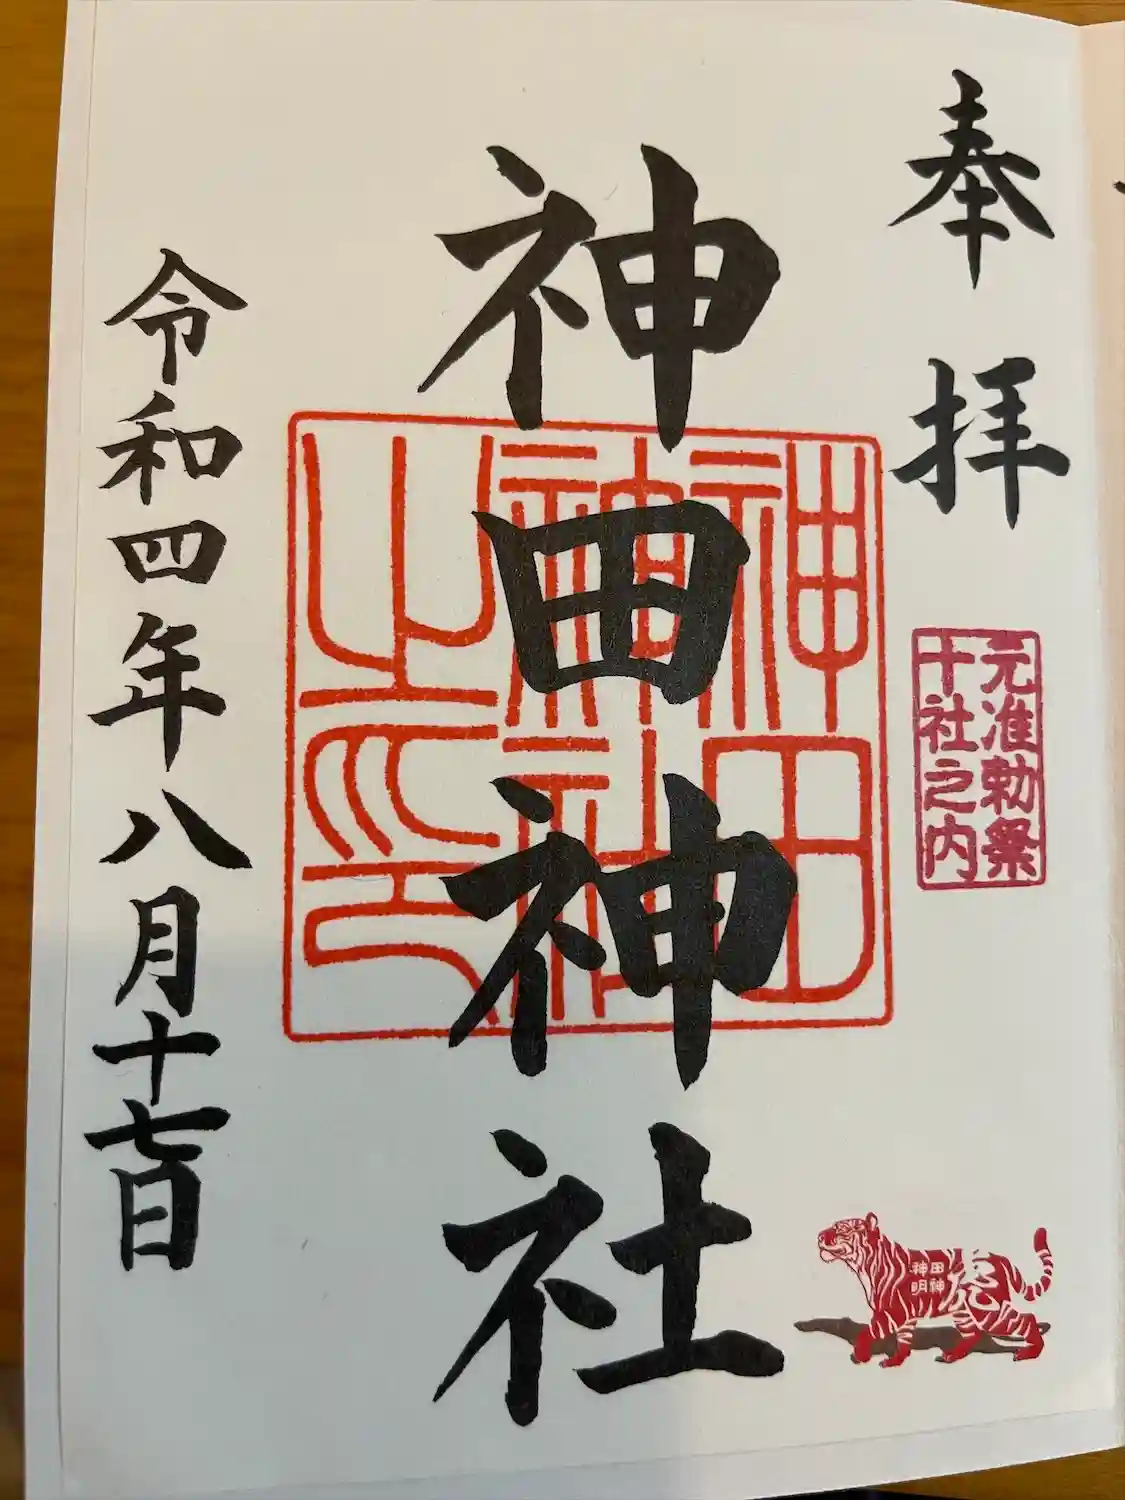 奉拝
元准勅祭
十社之内
神田神社
神田
神社
之印
令和四年八月十七日
神田
明神
虎